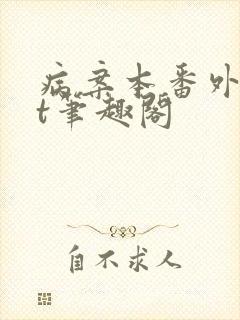 病案本番外
t笔趣阁
自不求人